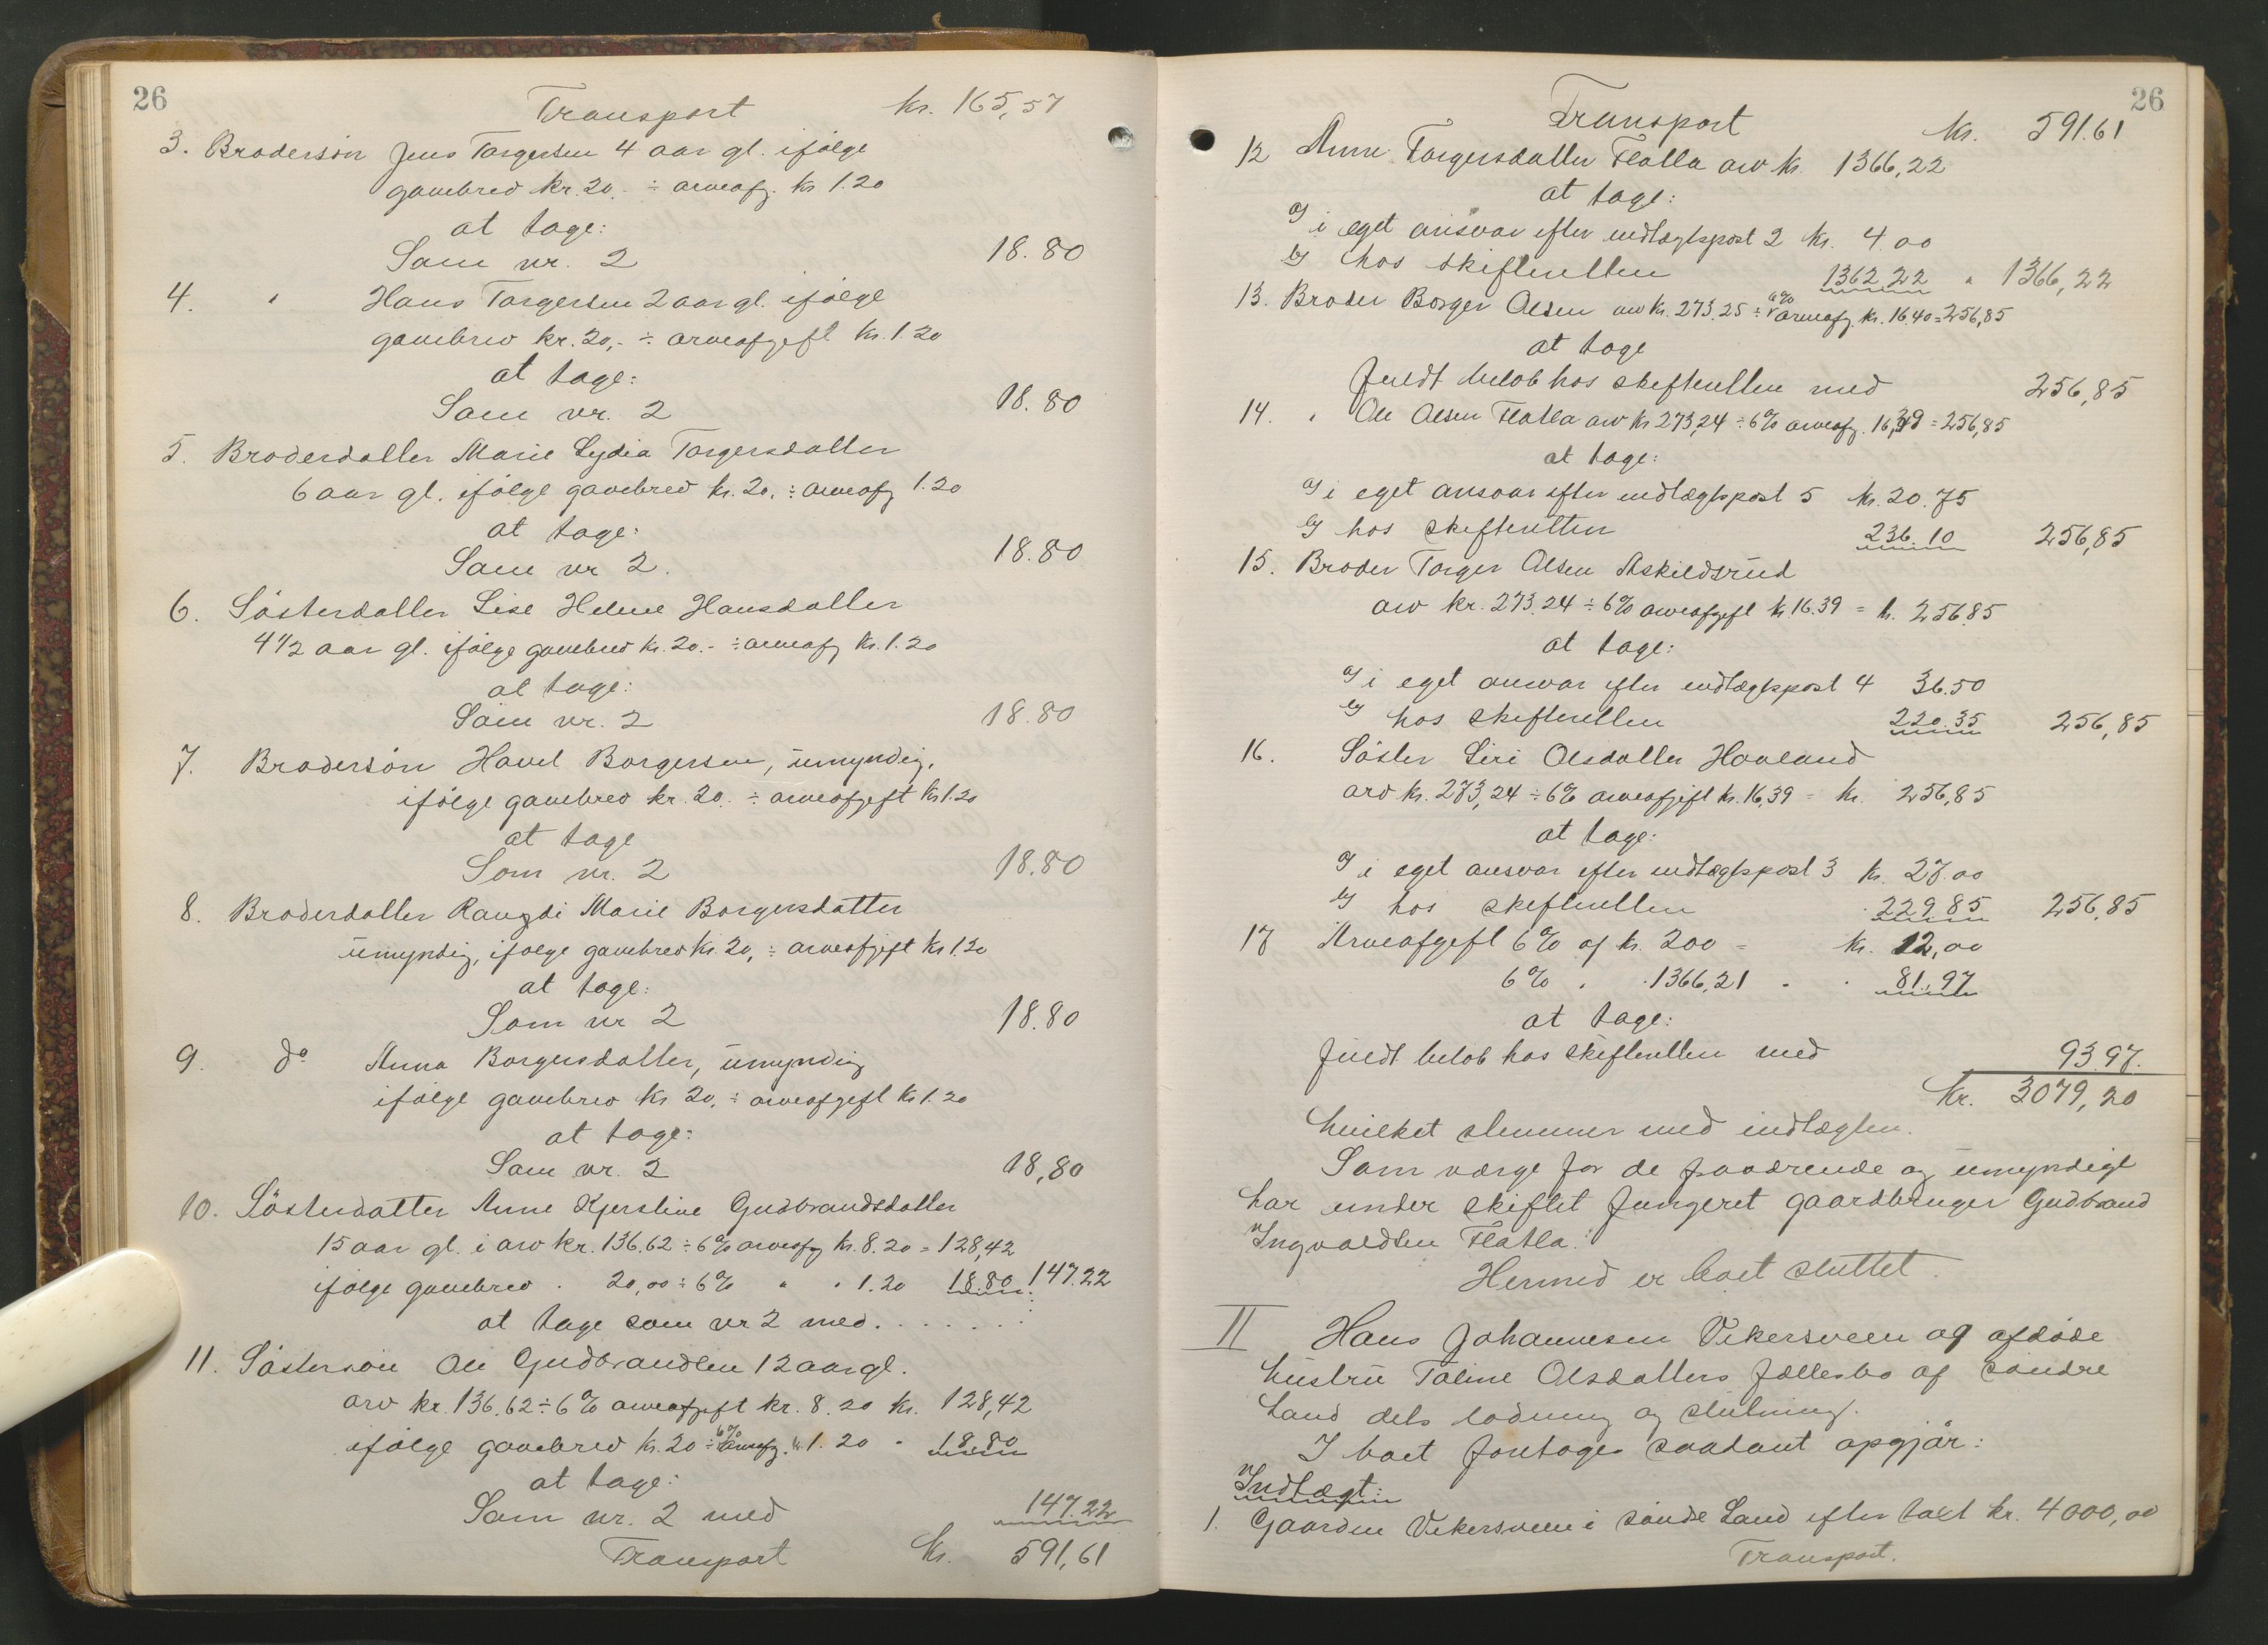 26
Transport kr. 165,57
3. Brodersön Jens Torgersen 4 aar gl. ifölge
gavebrev kr. 20. ÷ arveafg. kr 1.20
at tage:
Som nr. 2 18.80
4. " Hans Torgersen 2 aar gl. ifölge
gavebrev kr. 20,- ÷ arveafgift kr. 1.20
at tage:
Som nr. 2 18.80
5. Broderdatter Marie Lydia Torgersdatter
6 aar gl. ifölge gavebrev kr. 20. ÷ arveafg 1.20
at tage:
Som nr 2. 18.80
6. Sösterdatter Lise Helene Hansdatter
4 1/2 aar gl. ifölge gavebrev kr. 20.- ÷ arveafg kr. 1.20
at tage:
Som nr. 2 18.80
7. Brodersön Havel Borgersen, umyndig,
ifölge gavebrev kr. 20. ÷ arveafgift kr 1.20
at tage
Som nr. 2 18.80
8. Broderdatter Rangdi Marie Borgersdatter
umyndig, ifölge gavebrev kr. 20, ÷ arveafgift kr 1.20
at tage:
Som nr 2 18.80
9. do Anna Borgersdatter, umyndig
ifölge gavebrev kr 20, ÷ arveafgift kr 1.20
at tage:
Som nr. 2 18,80
10. Sösterdatter Anne Kjerstine Gudbrandsdatter
15 aar gl. i arv kr. 136.62 ÷ 6% arveafg kr. 8.20 = 128,42
ifölge gavebrev . 20,00 ÷ 6% " " 1.20 18.80 147.22
at tage som nr 2 med . . . . . . .
11. Söstersön Ole Gudbrandsen 12 aar gl.
arv kr. 136.62 ÷ 6% arveafgift kr. 8.20 kr. 128,42
ifölge gavebrev kr. 20 ÷ 6% arveafg. kr. 1.20 " 18.80
at tage:
Som nr. 2 med 147.22
Transport kr. 591,61
26
Transport kr. 591.61
12 Anne Torgersdatter Flatla arv kr. 1366,22
at tage:
a) i eget ansvar efter indtægtspost 2 kr. 4.00
b) hos skifteretten 1362.22 " 1366,22
13. Broder Borger Olsen arv kr. 273.25 ÷ 6% arveafg. kr. 16.40 = 256,85
at tage
fuldt belöb hos skifteretten med 256,85
14. " Ole Olsen Flatla arv kr 273,24 ÷ 6% arveafg. 16,39 = 256,85
at tage:
a) i eget ansvar efter indtægtspost 5 kr. 20.75
b) hos skifteretten 236.10 256,85
15. Broder Torger Olsen Askildsrud
arv kr. 273.24 ÷ 6% arveafgift kr 16.39 = kr. 256.85
at tage:
a) i eget ansvar efter indtægtspost 4 36.50
b) hos skifteretten 220.35 256,85
16. Söster Siri Olsdatter Hovland
arv kr. 273,24 ÷ 6% arveafgift kr. 16,39 = kr. 256,85
at tage:
a) i eget ansvar efter indtægtspost 3 kr. 27.00
b) hos skifteretten 229.85 256.85
17 Arveafgift 6% af kr. 200 = kr. 12,00
6% . . 1366,21 . . 81.97
at tage:
fuldt belöb hos skifteretten med 93.97.
Kr. 3079,20
hvilket stemmer med indtægten.
Som værge for de fraværende og umyndige
har under skiftet fungeret gaardbruger Gudbrand
Ingvaldsen Flatla.
Hermed er boet sluttet.
II Hans Johannesen Vikersveen og afdöde
hustru Taline Olsdatters fællesbo af Söndre
Land dets lodning og slutning.
I boet foretoges saadant opgjör:
Indtægt:
1. Gaarden Vikersveen i Söndre Land efter taxt kr. 4000,00
Transport.